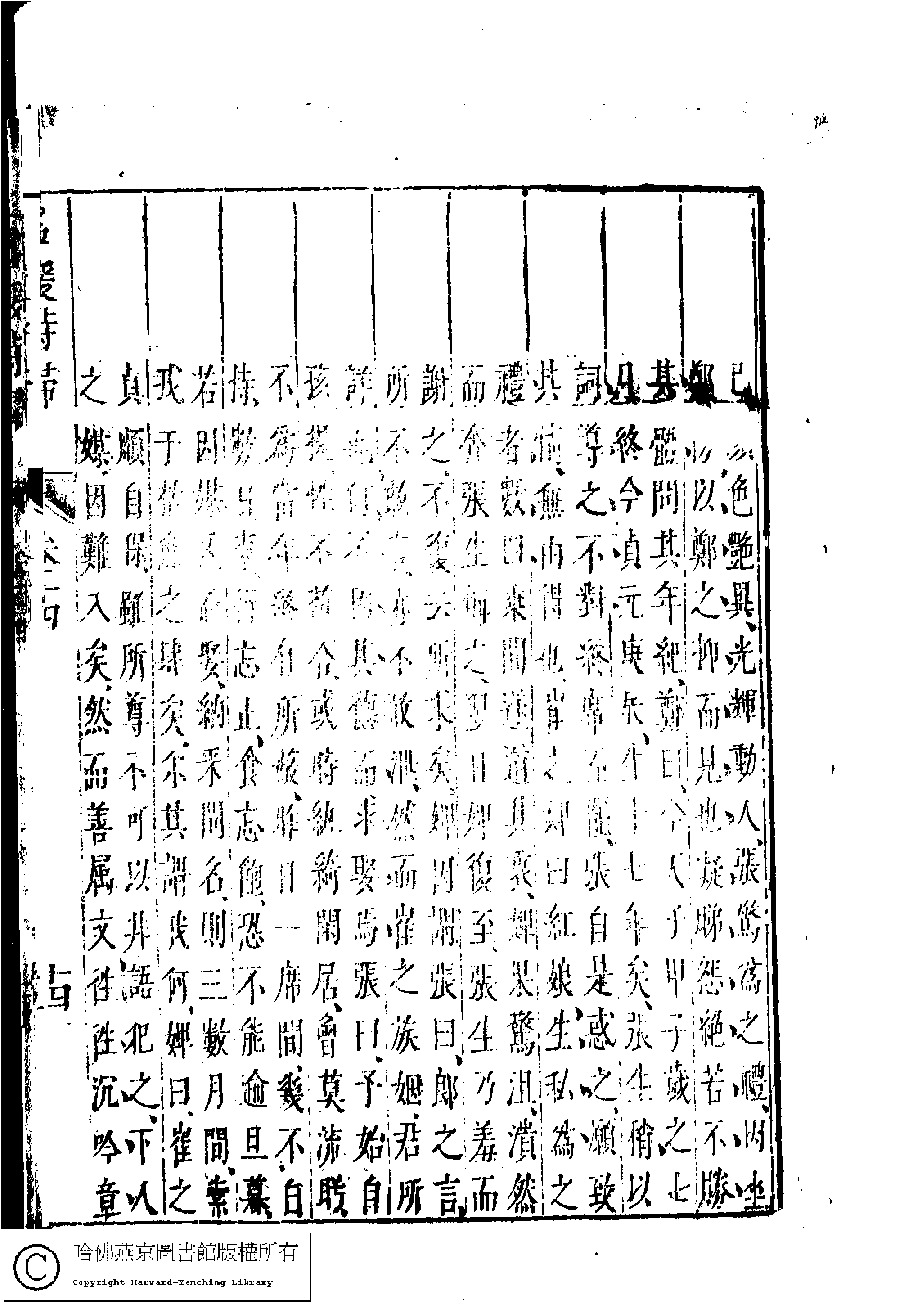 色艷異光輝動人張驚為之禮因坐
以鄭之抑而見也凝睇怨絕若不勝
其體問其年紀鄭曰今天子甲子歲之七
月終今貞元庚辰生十七年矣張生稍以
詞導之不對終席而罷張自是惑之願致
其情無由得也崔之婢曰紅娘生私為之
禮者數四乘間遂道其衷婢果驚沮潰然
而奔張生悔之翌日婢復至張生乃羞而
謝之不復云所求矣婢因謂張曰郎之言
所不敢言亦不敢泄然而崔之族姻君所
詳也何不因其德而求娶焉張曰予始自
孩提性不苟合或時紈綺閒居曾莫流盼
不為當年終有所蔽昨日一席間幾不自
持數日來行忘止食忘飽恐不能逾旦暮
若因媒氏而娶納采問名則三數月間索
我于枯魚之肆矣尒其謂我何婢曰崔之
貞順自保雖所尊不可以非語犯之下人
之謀因難入矣然而善属文往往沉吟章
名媛詩歸 卷十四 十四
哈佛燕京圖書館版權所有
Copyright Harvard-Yenching Library